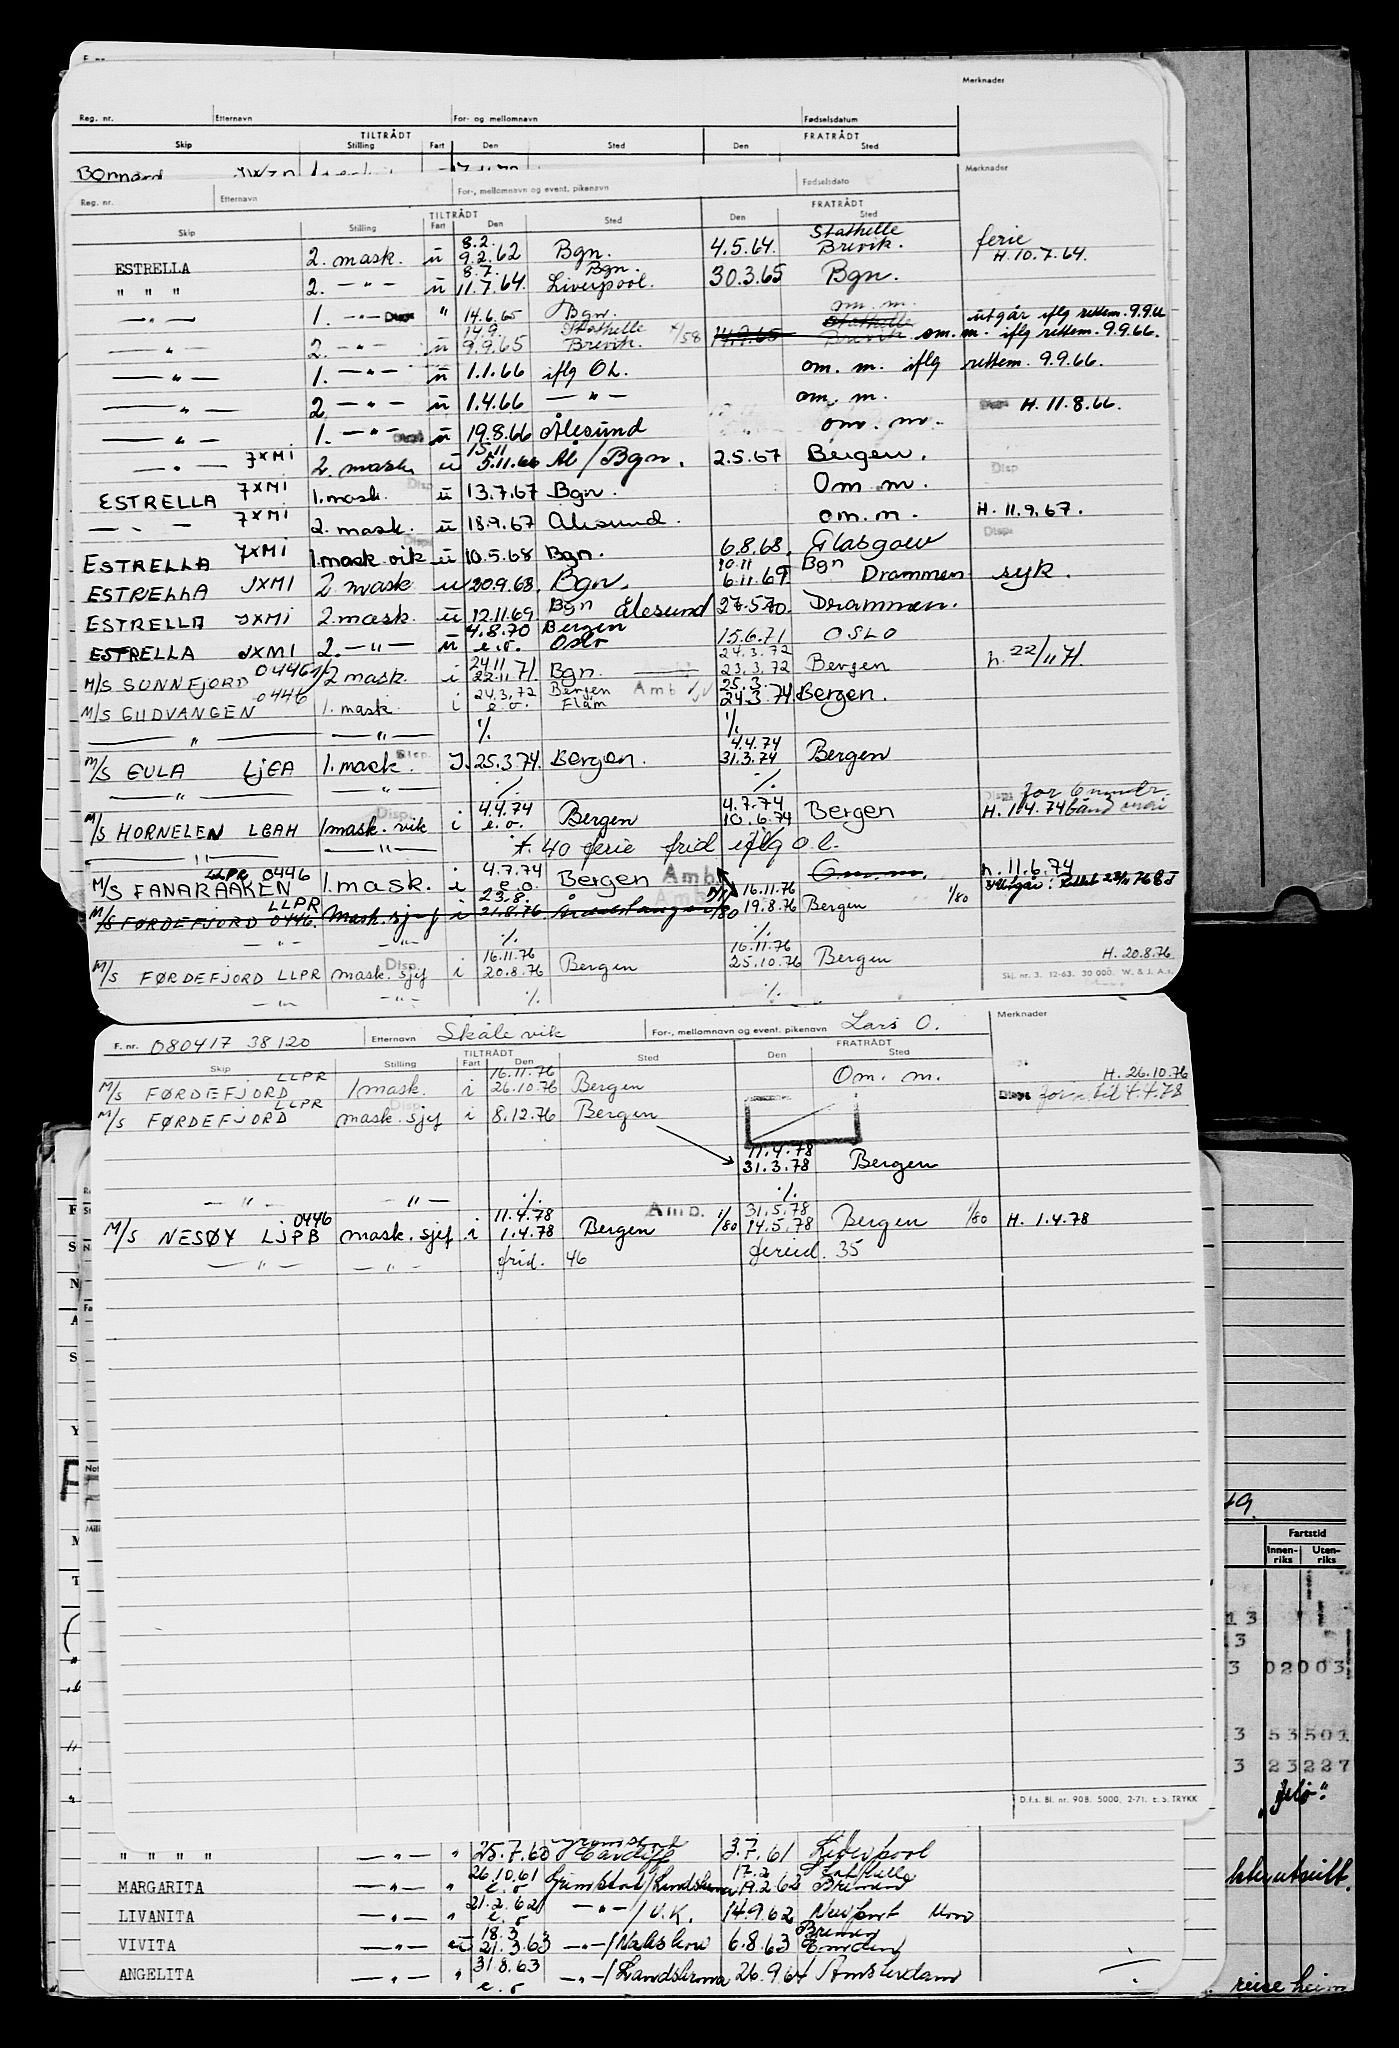 Merknader
Reg. nr. Etternavn For- og mellomnavn Fødselsdatum
TILTRÅDT FRATRÅDT
Skip Stilling Fart Den Sted Den Sted
Bonnard
Reg. nr. Etternavn For-, mellomnavn og event. pikenavn Fødselsdato Merknader
TILTRÅDT FRATRÅDT
Skip Stilling Fart Den Sted Den Sted
8.2. Stathelle ferie
ESTRELLA 2. mask. ü 9.2.62 Bgn. 4.5.64. Brevik. H. 10.7.64.
8.7. Bgn.
" " " 2. -"- ü 11.7.64. Liverpool. 30.3.65 Bgn.
-"- 1. -"- Disp " 14.6.65 Bgn. om. m. utgår iflg rettem. 9.9.66
14.9. Stathelle Stathelle
-"- 2. -"- ü 9.9.65 Brevik. 14.9.65 Brevik om. m. iflg rettem. 9.9.66.
-"- 1. -"- ü 1.1.66 iflg OL. om. m. iflg rettem. 9.9.66.
-"- 2. -"- ü 1.4.66 -"- om. m. H. 11.8.66.
-"- 1. -"- Disp ü 19.8.66 Ålesund om. m.
15.11
-"- 7XMI 2. mask. ü 5.11.66 Ål/Bgn. 2.5.67 Bergen. Disp
ESTRELLA 7XMI 1. mask. Disp ü 13.7.67 Bgn. Om m.
-"- 7XMI 2. mask. ü 18.9.67 Ålesund. om. m. H. 11.9.67.
ESTRELLA 7XMI 1. mask vik ü 10.5.68 Bgn. 6.8.68. Glasgow Disp
10.11 Bgn
ESTRELLA JXMI 2. mask ü 20.9.68. Bgn. 6.11.69 Drammen syk.
ESTRELLA JXMI 2. mask. ü 12.11.69. Bgn Ålesund 27.5.70. Drammen.
4.8.70 Bergen
ESTRELLA JXMI 2. -"- ü e.o. Oslo 15.6.71 OSLO
24.11 24.3.72
M/S SUNNFJORD 0446 2 mask. i 22.11.71. Bgn. 23.3.72 Bergen h. 22/11 71.
0446 24.3.72 Bergen Amb 25.3.
M/S GUDVANGEN 1. mask. i e.o. Flåm 24.3.74. Bergen.
-"- -"- ./. ./.
4.4.74
M/S EULA LJEA 1. mask. Disp. I. 25.3.74. Bergen. 31.3.74 Bergen
-"- -"- ./. ./.
4.4.74 4.7.74
M/S HORNELEN LGAH 1mask. vik i e.o. Bergen 10.6.74 Bergen H. 1.4.74
-"- -"- f. 40 ferie frid iflg o.l.
LLPR 0446 4.7.74
M/S FANARAAKEN 1. mask. i e.o. Bergen Amb. Om m. h. 11.6.74
LLPR 23.8. 16.11.76
M/S FØRDEFJORD 0446. Mask. sjef i 21.8.76 1/80 19.8.76 Bergen 1/80
-"- -"- ./. ./.
16.11.76 16.11.76 H. 20.8.76
M/S FØRDEFJORD LLPR mask. sjef Disp. i 20.8.76 Bergen 25.10.76 Bergen
Skj. nr. 3. 12-63. 30 000. W. & J. A.s.
-"- -"- ./. ./.
F. nr. 080417 38120 Etternavn Skåle vik For-, mellomnavn og event. pikenavn Lars O. Merknader
TILTRÅDT FRATRÅDT
Skip Stilling Fart Den Sted Den Sted
LLPR 16.11.76
M/S FØRDEFJORD 1mask. i 26.10.76 Bergen Om. m. H. 26.10.76
LLPR Disp
M/S FØRDEFJORD mask. sjef i 8.12.76 Bergen Disps til 4.4.78
11.4.78
31.3.78 Bergen
-"- -"- ./. ./.
0446 11.4.78 Amb. 31.5.78
M/S NESØY LJPB mask. sjef i 1.4.78 Bergen 1/80 14.5.78 Bergen 1/80 H. 1.4.78
-"- -"- frid. 46 feried. 35
D.f.s. Bl. nr. 90B. 5000. 2-71. E. S. TRYKK
" " " " -"- " 25.7.60 Cardiff 3.7.61 Liverpool
26.10.61 17.2
MARGARITA -"- " e.o Grimstad/Landskrona 19.2.62
21.2.62
LIVANITA -"- " e.o -"-/U.K. 14.9.62 Newport Mon
18.3 Bremen
VIVITA -"- ü 21.3.63 -"-/Nakskow 6.8.63 Emden
31.8.63
ANGELITA -"- " e.o -"-/Landskrona 26.9.64 Amsterdam
Fartstid
Innen-riks Uten-riks
13
3
3 02003
3 53501
3 23227
reise heim